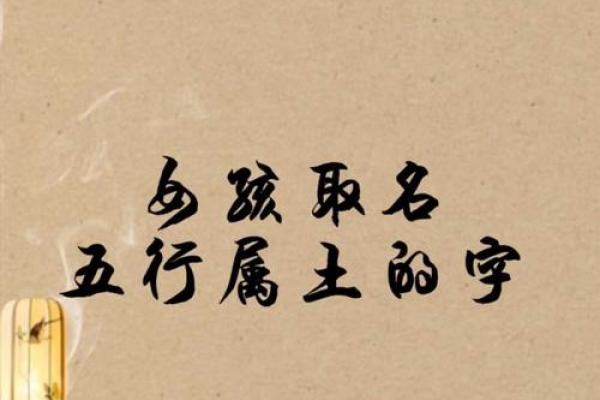 女孩取名
五行属土的字